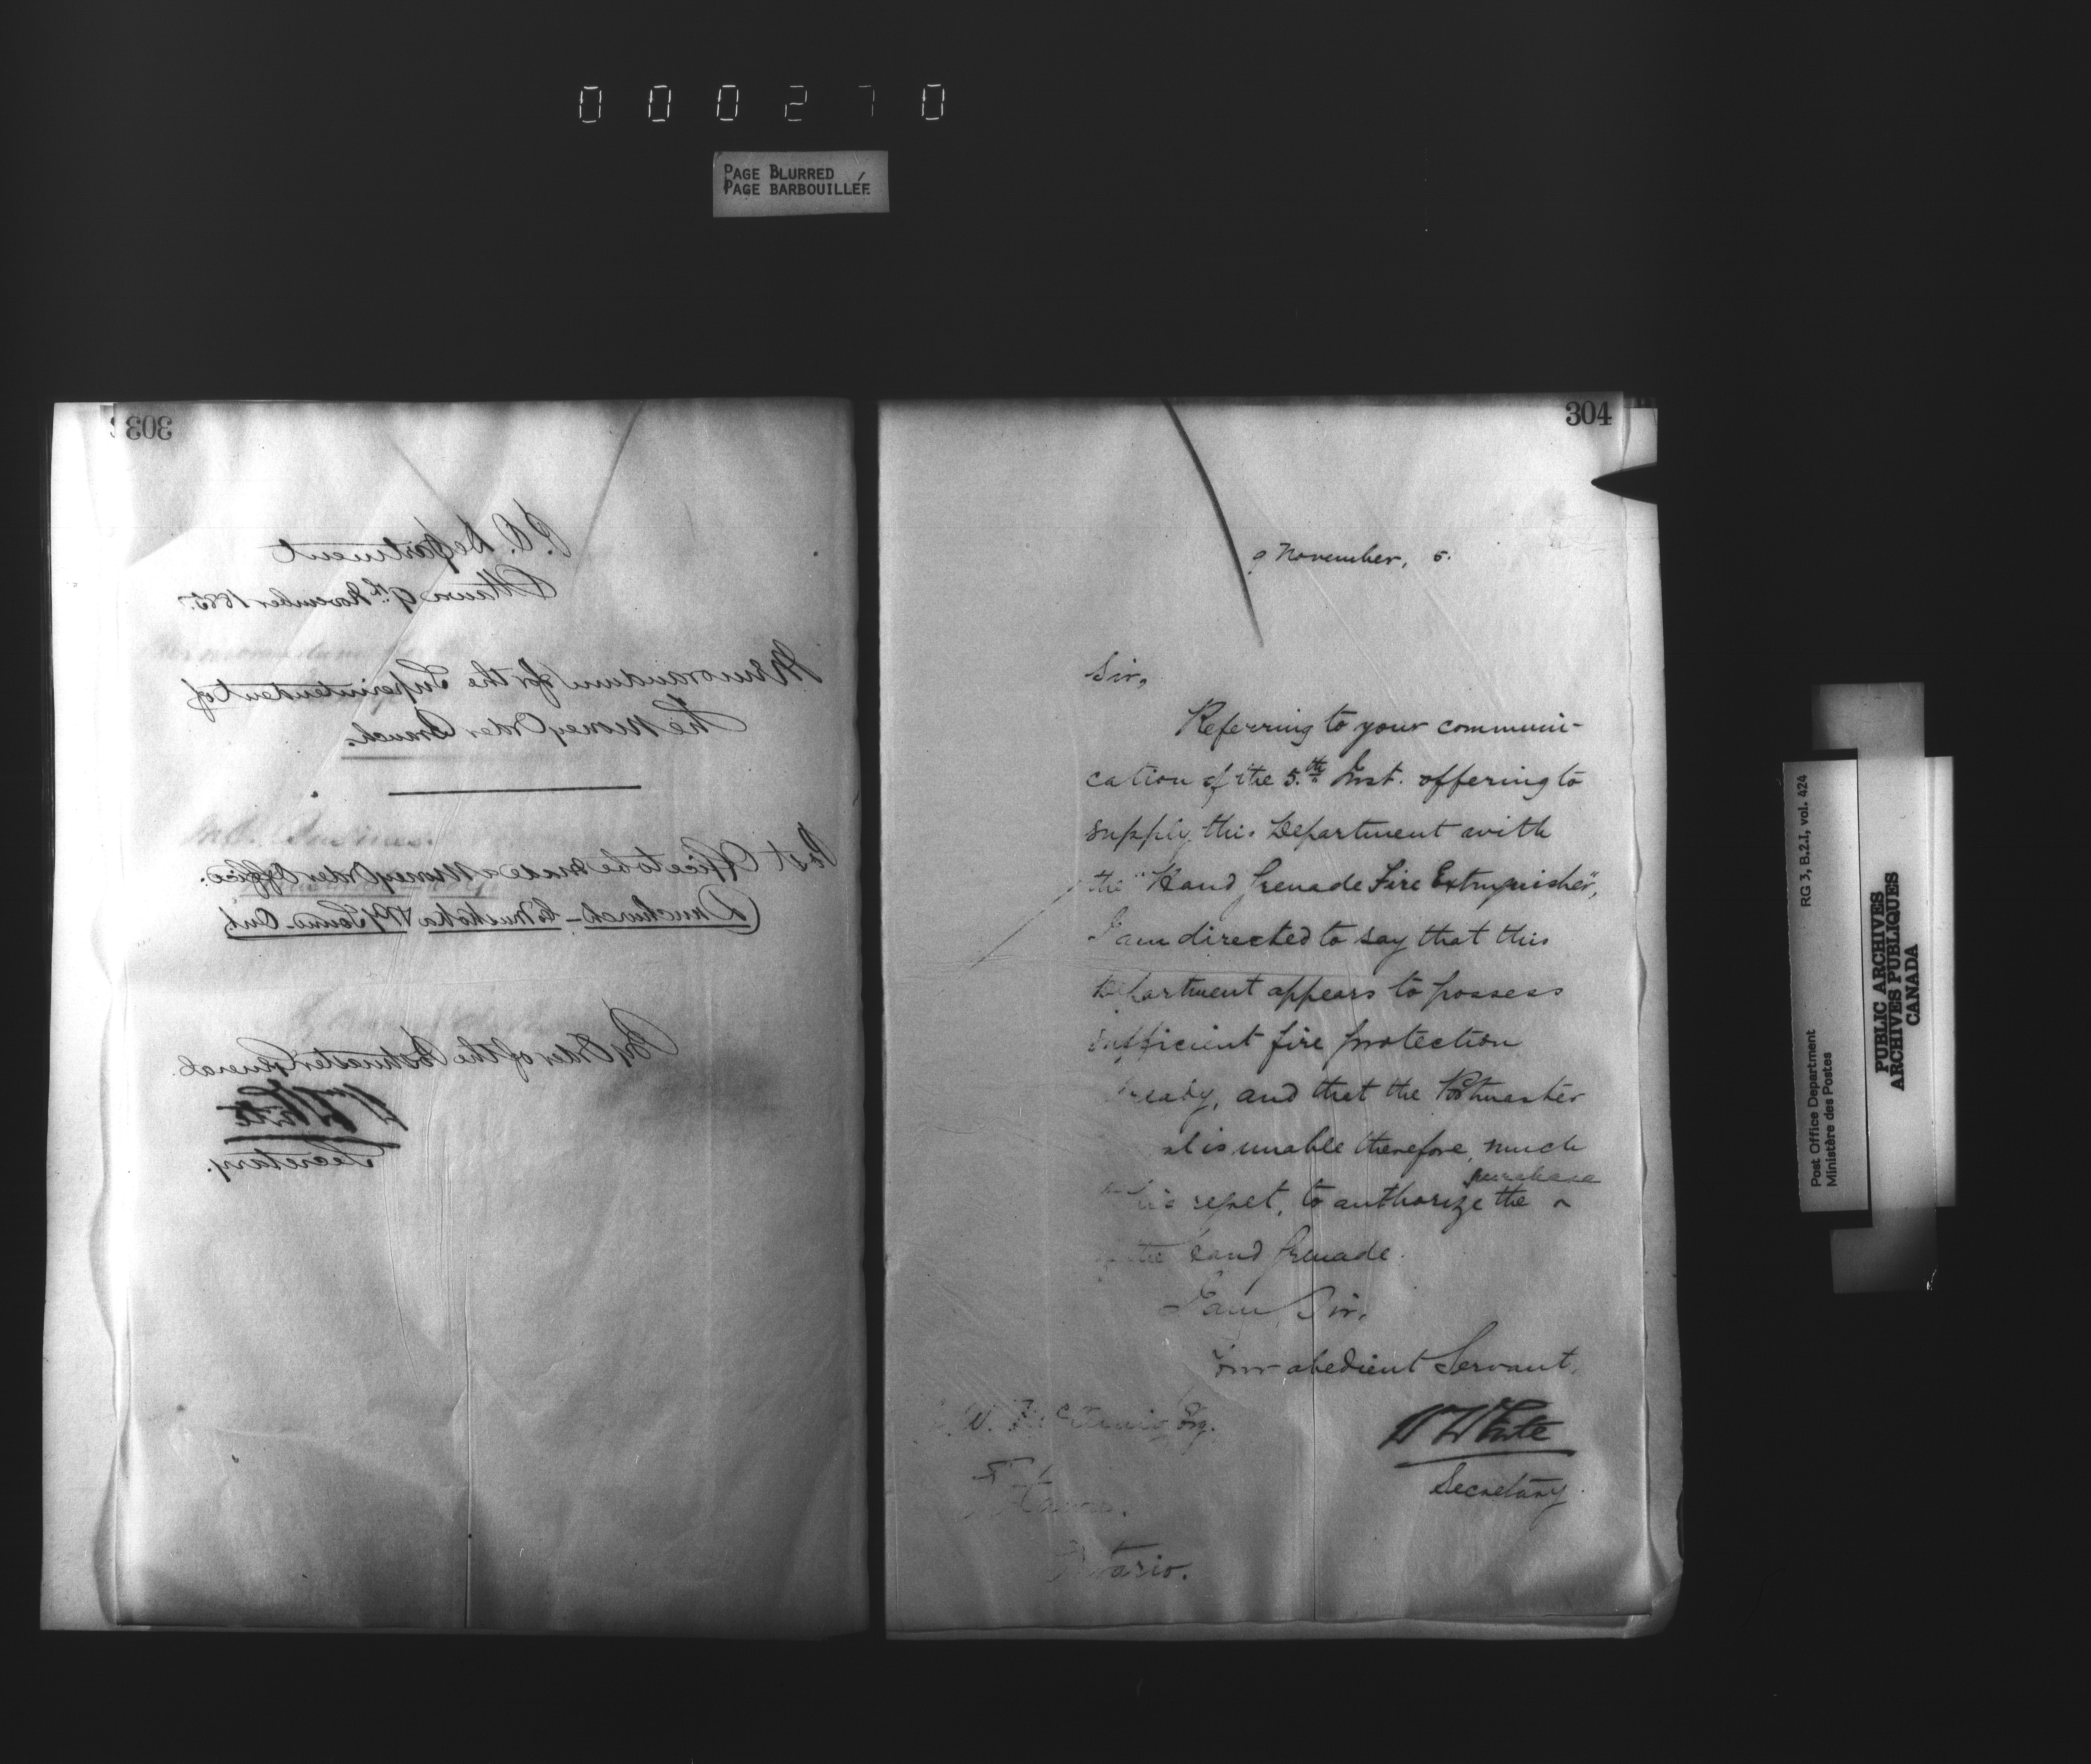 000270
PAGE BLURRED
PAGE BARBOUILLÉE
303
P.O. Department
Ottawa 9th November 1885.
Memorandum for the Superintendent of
the Money Order Branch.
Post Office to be made a Money Order Office.
(Dunchurch – Co Muskoka & P. Sound. Ont.)
By Order of the Postmaster General.
W White
Secretary.
304
9 November, 5.
Sir,
Referring to your communi-
cation of the 5.th Inst. offering to
supply this Department with
the "Hand Grenade Fire Extinguisher",
I am directed to say that this
Department appears to possess
sufficient fire protection
ready, and that the Postmaster
al is unable therefore, much
his regret, to authorize the ^ purchase
the Hand Grenade.
I am, Sir,
Your obedient Servant,
W White
Secretary.
W. Esq.
Ottawa.
Ontario.
Post Office Department
Ministère des Postes
RG 3, B.2.I, vol. 424
PUBLIC ARCHIVES
ARCHIVES PUBLIQUES
CANADA